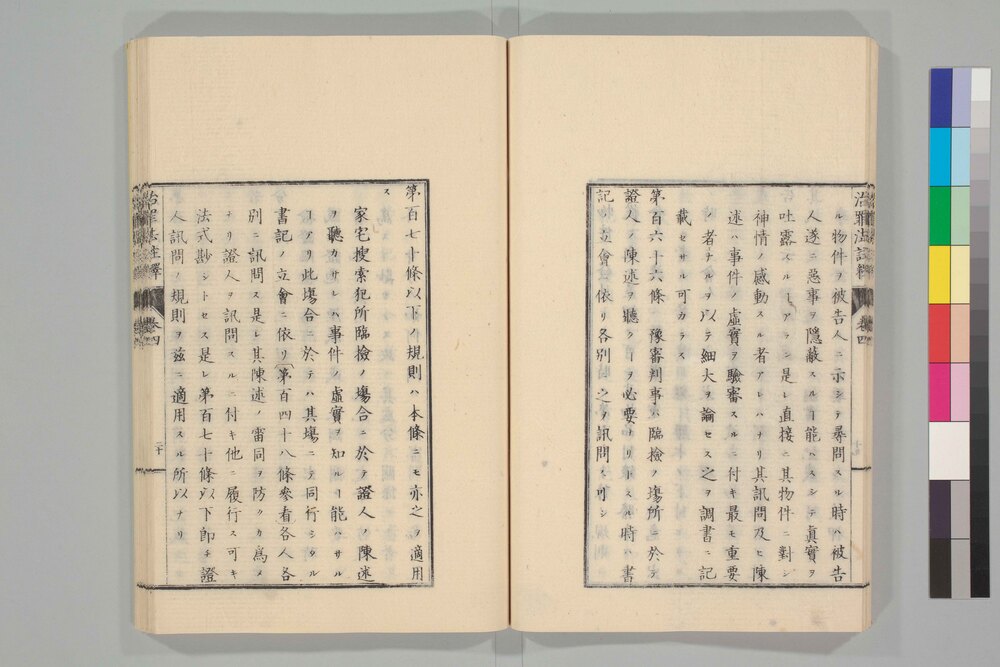 ル物件ヲ被告人ニ示シテ尋問スル時ハ被告
人遂ニ惡事ヲ隠蔽スルヿ能ハスシテ眞實ヲ
吐露スルヿアラン是レ直接ニ其物件ニ對シ
神情ノ感動スル者アレハナリ其訊問及ヒ陳
述ハ事件ノ虚實ヲ驗審スルニ付キ最モ重要
ノ者ナルヲ以テ細大ヲ論セス之ヲ調書ニ記
載セサル可カラス
第百六十六條 豫審判事ハ臨檢ノ塲所ニ於テ
證人ノ陳述ヲ聽クヿヲ必要ナリトスル時ハ書
記ノ立會ニ依リ各別ニ之ヲ訊問ス可シ
治罪法註釋 卷四
第百七十條以下ノ規則ハ本條ニモ亦之ヲ適用
ス
家宅搜索犯所臨檢ノ塲合ニ於テ證人ノ陳述
ヲ聽カサレハ事件ノ虚實ヲ知ルヿ能ハサル
ヿアリ此塲合ニ於テハ其塲ニテ同行シタル
書記ノ立會ニ依リ(第百四十八條參看)各人各
別ニ訊問ス是レ其陳述ノ雷同ヲ防クカ爲メ
ナリ證人ヲ訊問スルニ付キ他ニ履行ス可キ
法式尠シトセス是レ第百七十條以下即チ證
人訊問ノ規則ヲ玆ニ適用スル所以ナリ
治罪法註釋 卷四 二十